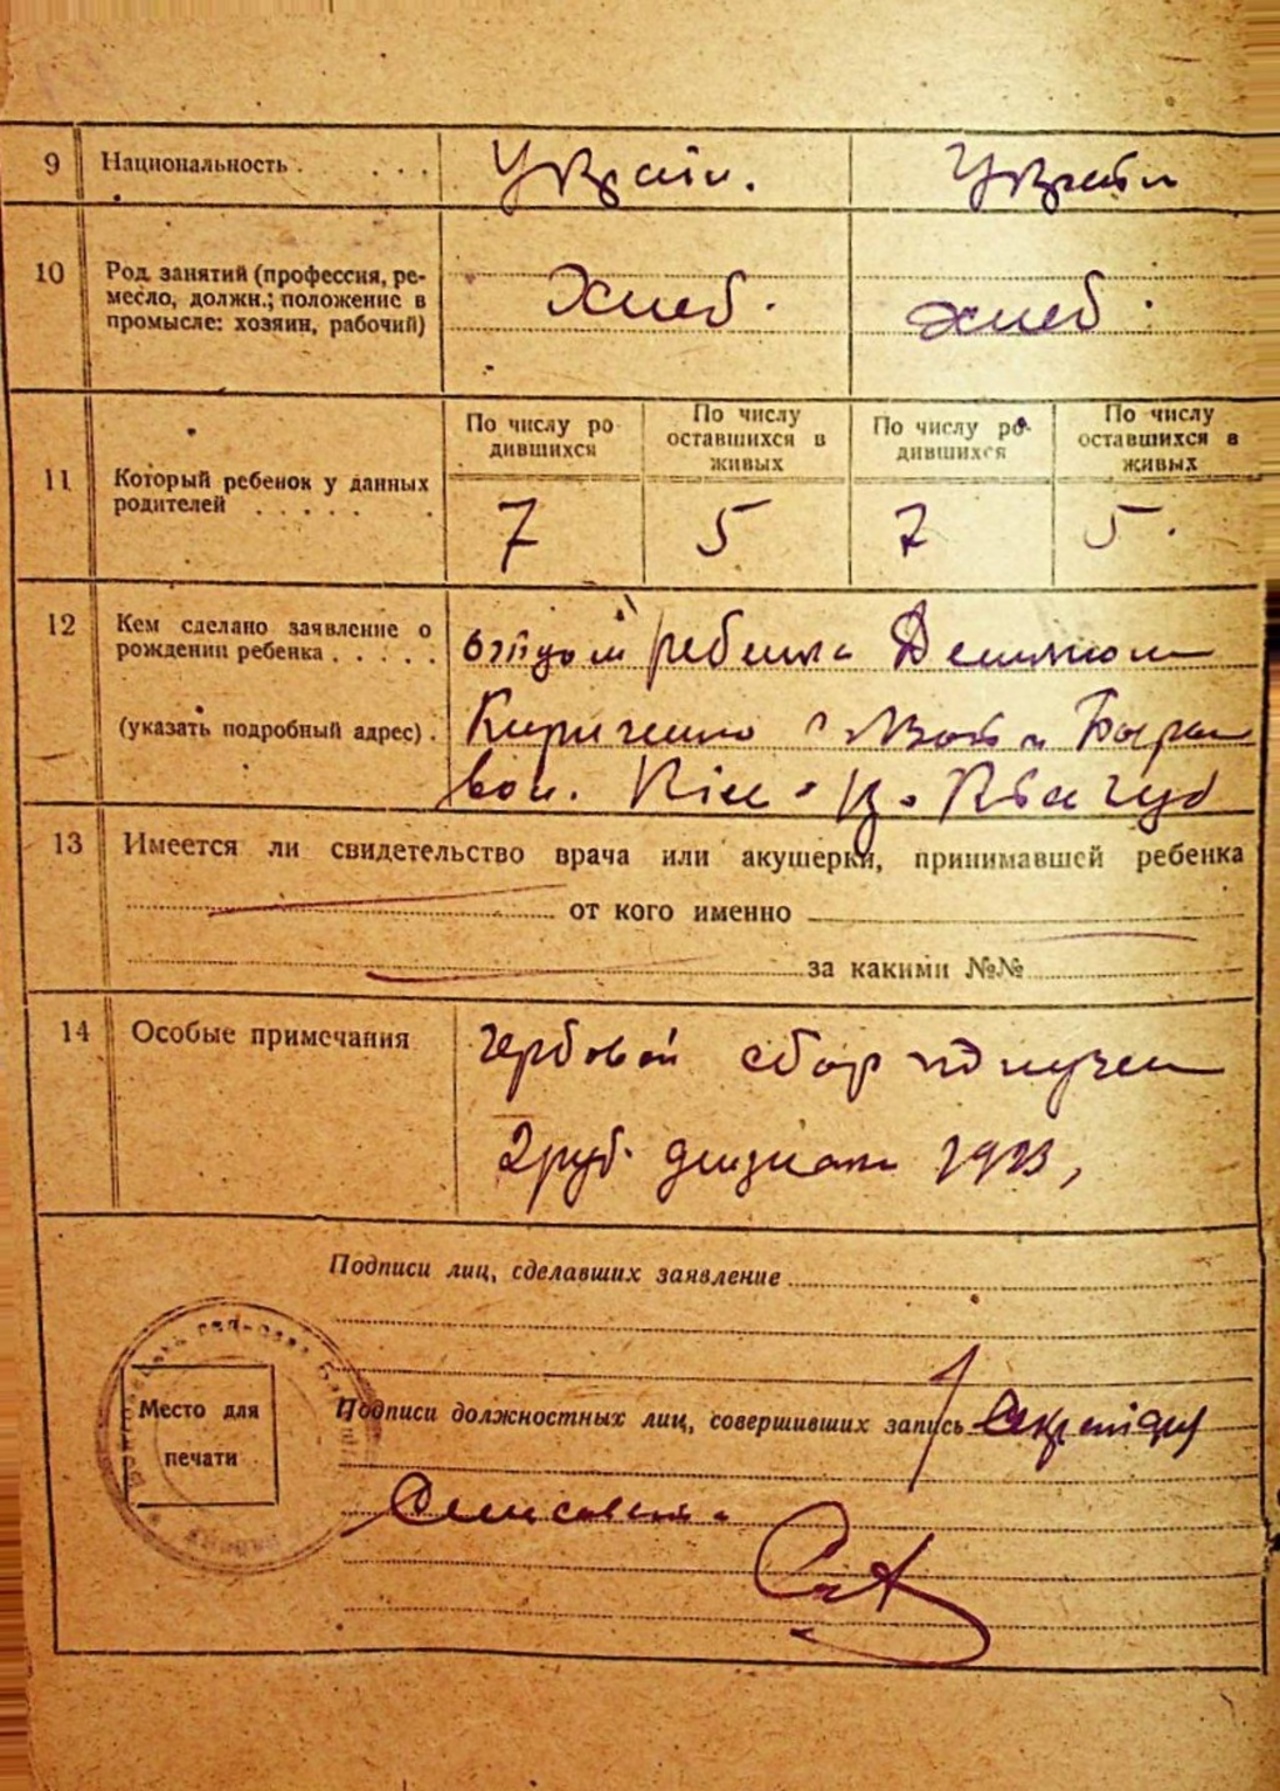 9 Национальность . . . . Украин. Украин
10 Род занятий (профессия, ре-
месло, должн.; положение в
промысле: хозяин, рабочий)
Хлеб. хлеб.
По числу ро-
дившихся
По числу
оставшихся в
живых
По числу ро-
дившихся
По числу
оставшихся в
живых
11 Который ребенок у данных
родителей . . . . . .
7 5 7 5.
12 Кем сделано заявление о
рождении ребенка . . . . .
отцом ребенка
(указать подробный адрес) .
Кириченко
вол.
13 Имеется ли свидетельство врача или акушерки, принимавшей ребенка
от кого именно
за какими №№
14 Особые примечания
гербовой сбор получен
2 руб. 1923,
Подписи лиц, сделавших заявление
Место для
печати
Подписи должностных лиц, совершивших запись Секретарь